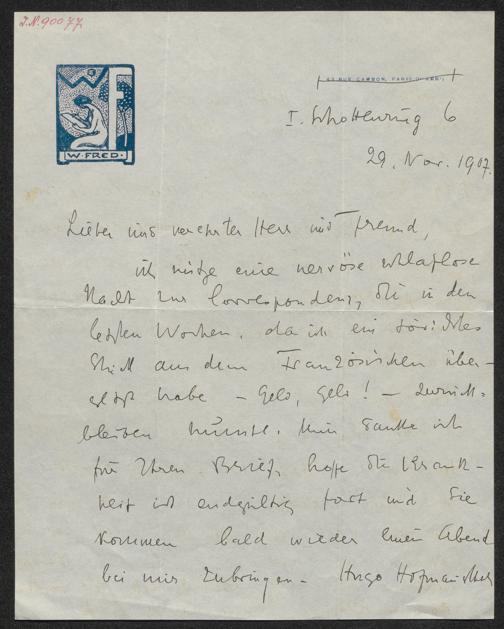 I.N. 90077
W. FRED.
43 RUE CAMBON, PARIS
I. Schottenring 6
29. Nov. 1907.
Lieber und verehrter Herr und Freund,
ich nütze eine nervöse schlaflose
Nacht zur Correspondenz, die in den
letzten Wochen, da ich ein törichtes
Stück aus dem Französischen über-
setzt habe – Geld, Geld! – zurück-
bleiben mußte. Nun danke ich
für Ihren Brief, hoffe die Krank-
heit ist endgültig fort und Sie
kommen bald wieder einen Abend
bei mir zubringen – Hugo Hofmannsthal